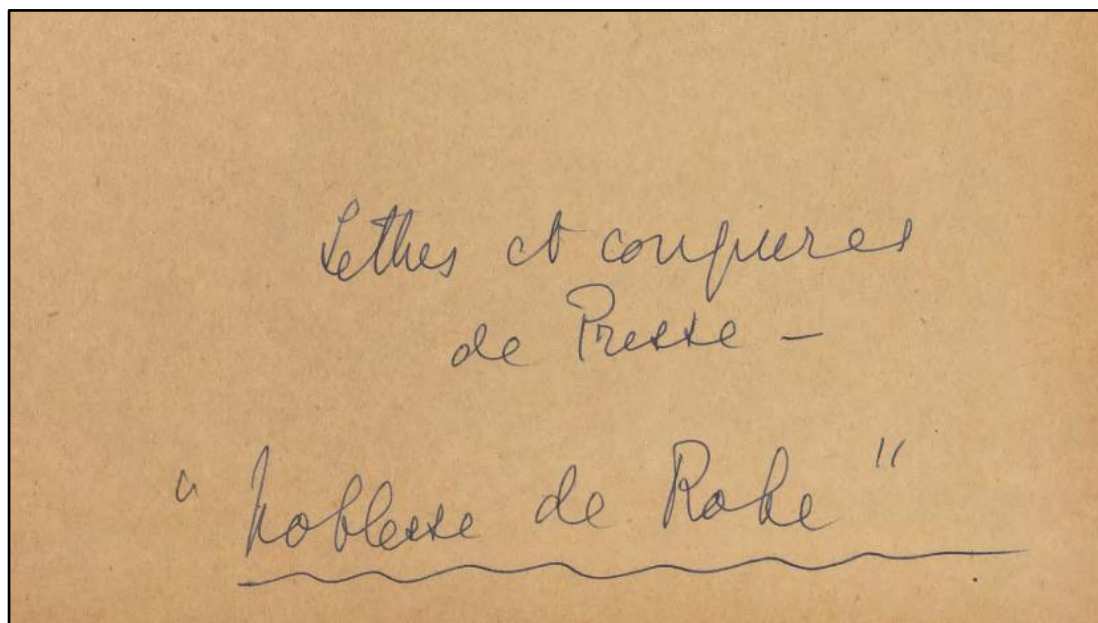 Lettres et coupures
de Presse –
"Noblesse de Robe"